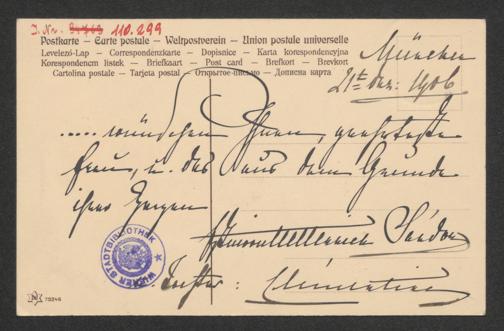 J. Nr. 110.299
Postkarte – Carte postale – Weltpostverein – Union postale universelle
Levelezö-Lap – Correspondenzkarte – Dopisnice – Karta korespondencyjna
Korespondencm listek – Briefkaart – Post card – Brefkort – Brevkort
Cartolina postale – Tarjeta postal – Открытое письмо – Дописна карта
München
21te Dez: 1906
..... wünschen Ihnen, geehrteste
Frau, u. das aus dem Grunde
ihres Herzens
Sándor
WIENER STADTBIBLIOTHEK
Tochter: Clémentine